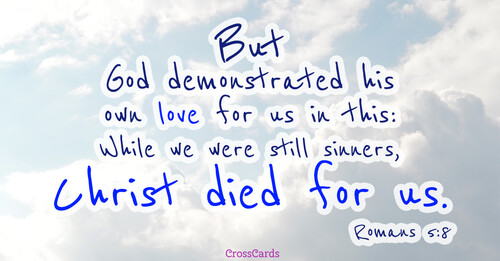 But
God demonstrated his
own love for us in this:
While we were still sinners,
Christ died for us.
Romans 5:8
CrossCards